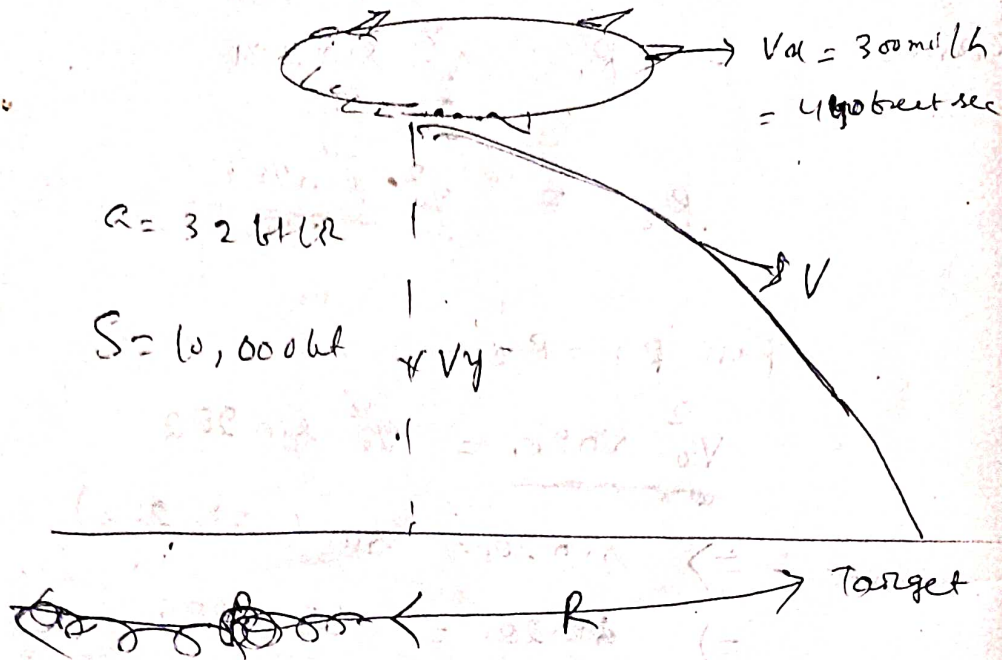 Vx = 300 mil/h
= 440 feet sec
a = 32 ft/s²
V
S = 10,000 ft
Vy
Target
R